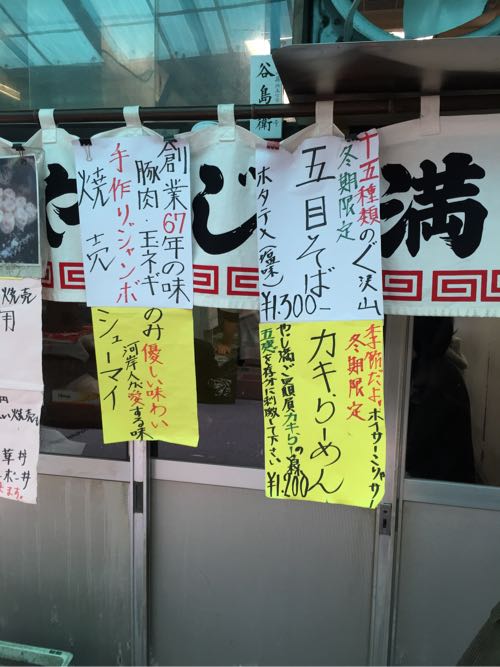 十五種類のぐ沢山
冬期限定
五目そば
ホタテ入(塩味)
¥1.300-
季節だよ。ボイサーンりゃサー
冬期限定
カキらーめん
やじ満ご品質カキらーの
五感を存分に刺激して下さい
¥1.200-
創業67年の味
豚肉・玉ネギ
手作りジャンボ
焼売
のみ優しい味わい
河岸人が愛する味
シューマイ
やじ満
谷島衛
焼売
草丼